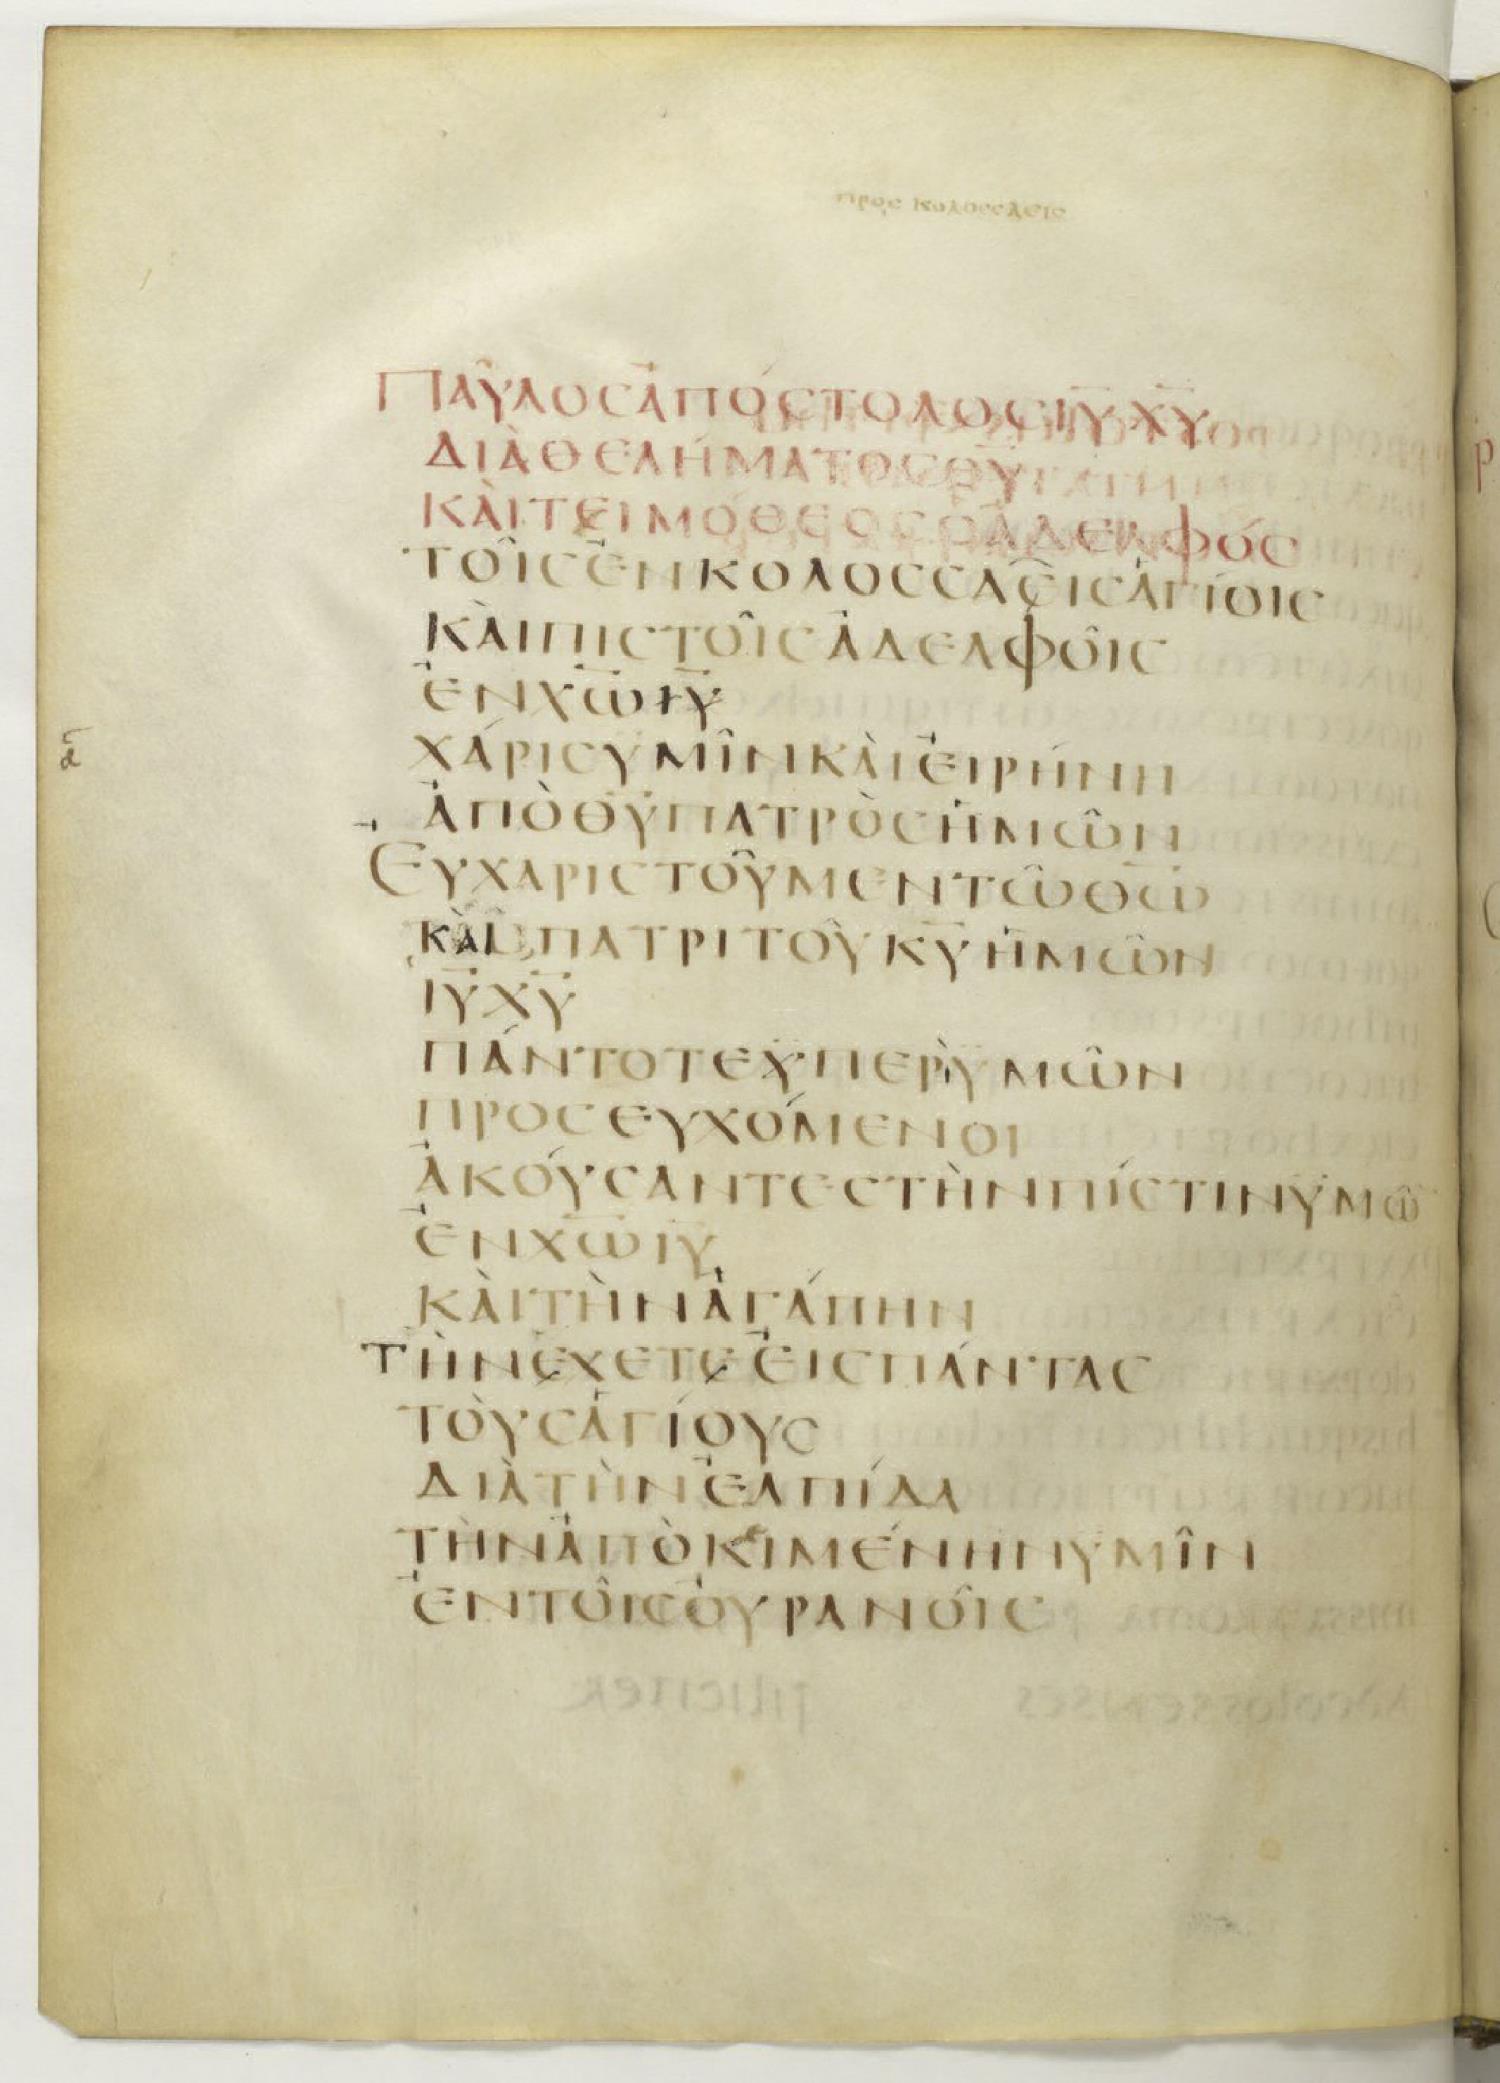 προς κολοσσαεις
ΠΑΥ͂ΛΟϹἈΠΌϹΤΟΛΟϹΙ̅Υ̅Χ̅Υ̅
ΔΙᾺΘΕΛΉΜΑΤΟϹΘ̅Υ̅
ΚᾺΙΤΕΙΜΌΘΕΟϹὉἈΔΕΛΦΌϹ
ΤΟΙ͂ϹἘΝΚΟΛΟϹϹΑΕΙϹἉΓΊΟΙϹ
ΚᾺΙΠΙϹΤΟΙ͂ϹἈΔΕΛΦΟΙ͂Ϲ
ἘΝΧ̅Ω̅Ι̅Υ̅
ΧΆΡΙϹΥΜΙ͂ΝΚᾺΙἘΙΡΉΝΗ
ἈΠῸΘ̅Υ̅ΠΑΤΡῸϹἩΜΩ͂Ν
ἘΥΧΑΡΙϹΤΟΥ͂ΜΕΝΤΩ͂Θ̅Ω̅
ΚᾺΙΠΑΤΡΙΤΟΥ͂Κ̅Υ̅ἩΜΩ͂Ν
Ι̅Υ̅Χ̅Υ̅
ΠΆΝΤΟΤΕΫΠΕΡῚΫΜΩ͂Ν
ΠΡΟϹΕΥΧΌΜΕΝΟΙ
ἈΚΟΎϹΑΝΤΕϹΤῊΝΠΊϹΤΙΝΫΜΩ͂
ἘΝΧ̅Ω̅Ι̅Υ̅
ΚᾺΙΤῊΝἈΓΆΠΗΝ
α̅
ΤῊΝἜΧΕΤΕἘΙϹΠΆΝΤΑϹ
ΤΟῪϹἉΓΊΟΥϹ
ΔΙᾺΤῊΝἘΛΠΊΔΑ
ΤῊΝἈΠῸΚΙΜΈΝΗΝΥΜΙ͂Ν
ἘΝΤΟΙ͂ϹΟΥΡΑΝΟΙ͂Ϲ